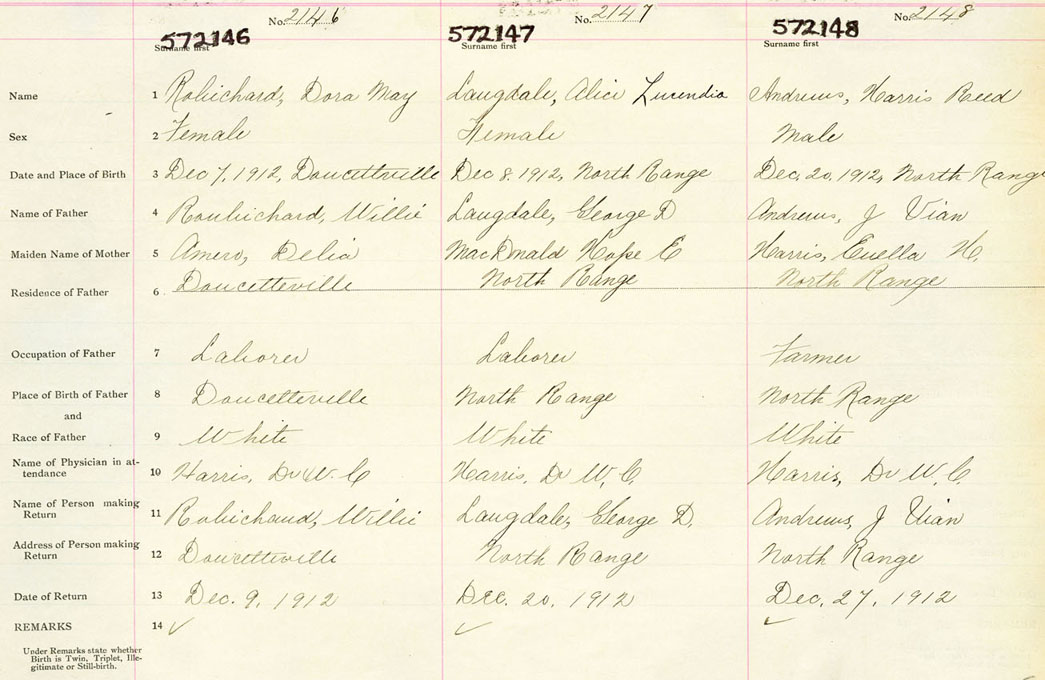 No. 2146 No. 2147 No. 2148
572146 572147 572148
Surname first Surname first Surname first
Name 1 Robichard, Dora May Langdale, Alice Lucendia Andrews, Harris Reed
Sex 2 Female Female Male
Date and Place of Birth 3 Dec 7, 1912, Doucetteville Dec 8. 1912, North Range Dec. 20, 1912, North Range
Name of Father 4 Roubichard, Willie Langdale, George D Andrews, J Vian
Maiden Name of Mother 5 Amero, Delia MacDonald Hope E Harris, Euella H.
Residence of Father 6 Doucetteville North Range North Range
Occupation of Father 7 Laborer Laborer Farmer
Place of Birth of Father 8 Doucetteville North Range North Range
and
Race of Father 9 White White White
Name of Physician in at-
tendance 10 Harris, Dr W. C Harris, Dr W. C. Harris, Dr W. C.
Name of Person making
Return 11 Robichaud, Willie Langdale, George D. Andrews, J Vian
Address of Person making
Return 12 Doucetteville North Range North Range
Date of Return 13 Dec. 9, 1912 Dec. 20, 1912 Dec. 27, 1912
REMARKS 14 ✓ ✓ ✓
Under Remarks state whether
Birth is Twin, Triplet, Ille-
gitimate or Still-birth.